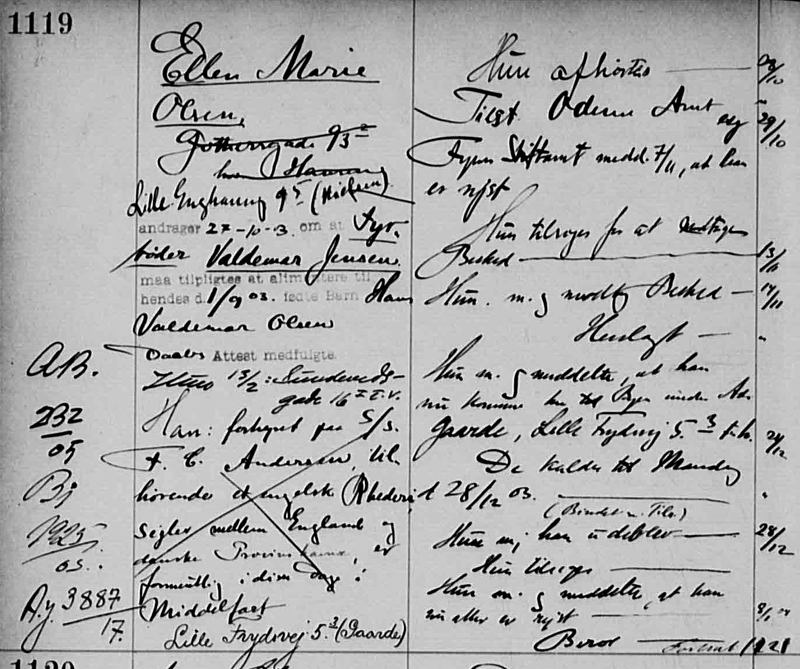 1119
Ellen Marie
Olsen,
Gothersgade 93²
Lille Enghavevej 9⁵ (Nielsen)
andrager 27-10-03. om at Fyr-
bøder Valdemar Jensen
maa tilpligtes at alimentere til
hendes d. 1/9 03. fødte Barn Hans
Valdemar Olsen
Daabs Attest medfulgte.
Hans 15/2: Sundeveds-
gade 16
Han: forhyret paa S/S.
F. C. Andersen, til-
hørende et engelsk Rhederi
Sejler mellem England og
danske Provinshavne, er
formentlig i disse Dage i
Middelfart
Lille Frydsvej 5.³ (Gaarde)
AB.
232
05
Bj
1925
05.
A.y. 3887
17.
Hun afhørtes 28/10
Tilst. Odense Amt 29/10
Fyens Stiftamt medd. 7/11, at han
er rejst
Hun tilsiges for at modtage
Besked 13/11
Hun. m. g modtog Besked 14/11
Henlagt "
Hun m. g meddelte, at han
nu kommer til Byen
Gaarde, Lille Frydsvej 5.³ 24/12
De kaldes til Mandag
28/12 03. "
Hun m; han udeblev 28/12
Hun tilsiges
Hun m. g meddelte, at han
nu atter er rejst
Beror
1120